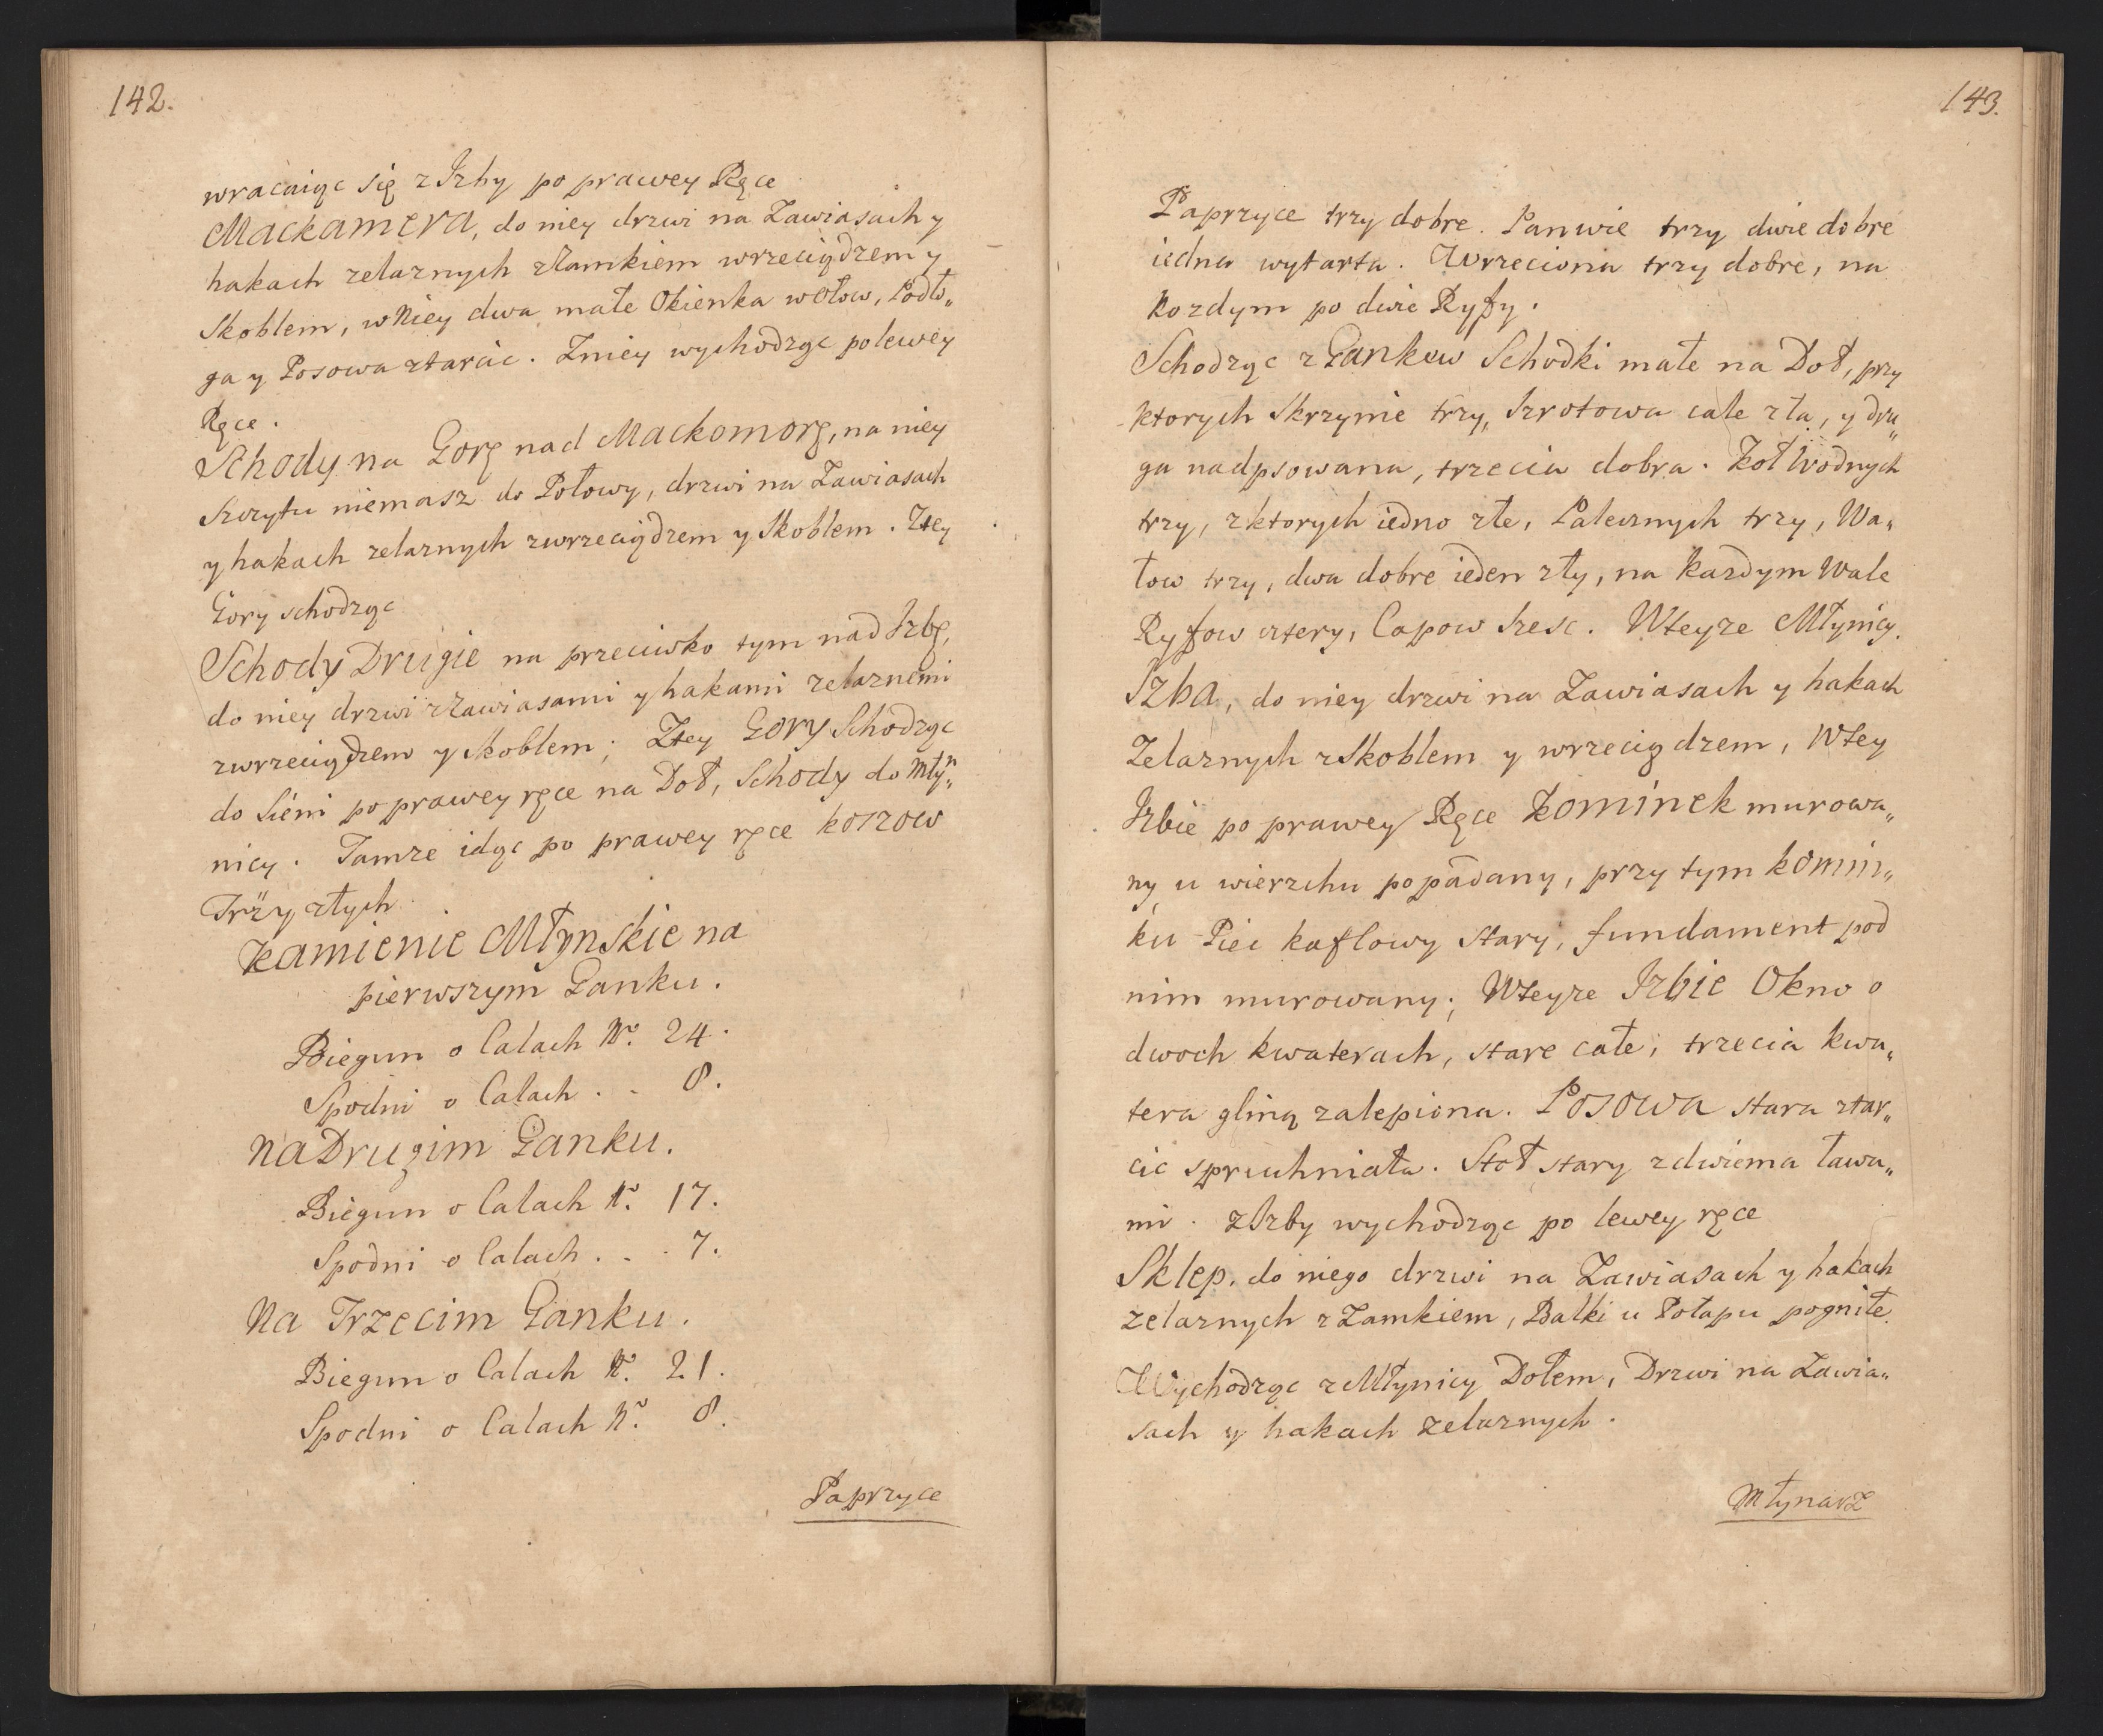 142.
wracaiąc się z Izby po prawey Ręce
Mackamera, do niey drzwi na Zawiasach y
hakach zelaznych z Zamkiem wrzeciądzem y
Skoblem, w Niey dwa małe Okienka w Ołow, Podło„
ga y Posowa z tarcic. Z niey wychodząc po lewey
Ręce.
Schody na Gorę nad Mackomorę, na niey
Szczytu niemasz do Połowy, drzwi na Zawiasach
y hakach zelaznych z wrzeciądzem y Skoblem. Z tey
Gory schodząc
Schody Drugie na przeciwko tym nad Izbę,
do niey drzwi z Zawiasami y hakami zelaznemi
z wrzeciądzem y Skoblem; Z tey Gory Schodząc
do Sieni po prawey ręce na Doł, Schody do Młyn„
nicy. Tamze idąc po prawey ręce koszow
Trzy złych
Kamienie Młynskie na
pierwszym Ganku.
Biegun o Calach No. 24.
Spodni o Calach . . 8.
Na Drugim Ganku.
Biegun o Calach No. 17.
Spodni o Calach . . . 7.
Na Trzecim Ganku.
Biegun o Calach No. 21.
Spodni o Calach No. 8.
Paprzyce
143.
Paprzyce trzy dobre. Panwie trzy dwie dobre
iedna wytarta. Wrzeciona trzy dobre, na
kozdym po dwie Ryfy.
Schodząc z Gankow Schodki małe na Doł, przy
ktorych Skrzynie trzy, Szrotowa cale zła, y dru„
ga nadpsowana, trzecia dobra. Koł Wodnych
trzy, z ktorych iedno złe, Palecznych trzy, Wa„
łow trzy, dwa dobre ieden zły, na kazdym Wale
Ryfow cztery, Capow Szesc. W teyze Młynicy.
Izba, do niey drzwi na Zawiasach y hakach
Zelaznych z Skoblem y wrzeciądzem, W tey
Izbie po prawey Ręce Kominek murowa„
ny u wierzchu popadany, przy tym komin„
ku Piec kaflowy stary, fundament pod
nim murowany; W teyze Izbie Okno o
dwoch kwaterach, stare całe, trzecia kwa„
tera gliną zalepiona. Posowa stara z tar„
cic spruchniała. Stoł stary z dwiema ława„
mi. z Izby wychodząc po lewey ręce
Sklep, do niego drzwi na Zawiasach y hakach
zelaznych z Zamkiem, Balki u Połapu pogniłe.
Wychodząc z Młynicy Dołem, Drzwi na Zawia„
sach y hakach zelaznych.
Młynarz